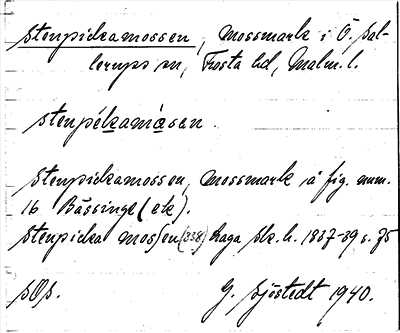 Stenpickamossen, Mossmark i Ö. Sal-
lerups sn, Frosta hd, Malm. l.
stenpékamåsan.
Stenpickamossen, Mossmark å fig. num.
16 Bässinge (ek).
Stenpicka mossen (338) Laga sk. h. 1837-39 s. 75
SOS. G. Sjöstedt 1940.